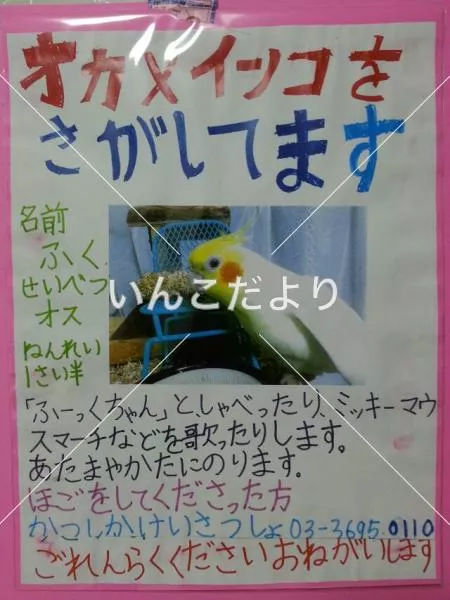 オカメインコを
さがしてます
名前
ふく
せいべつ
オス
ねんれい
1さい半
いんこだより
「ふーっくちゃん」としゃべったり、ミッキーマウ
スマーチなどを歌ったりします。
あたまやかたにのります。
ほごをしてくださった方
かつしかけいさつしょ 03-3695-0110
ごれんらくくださいおねがいします